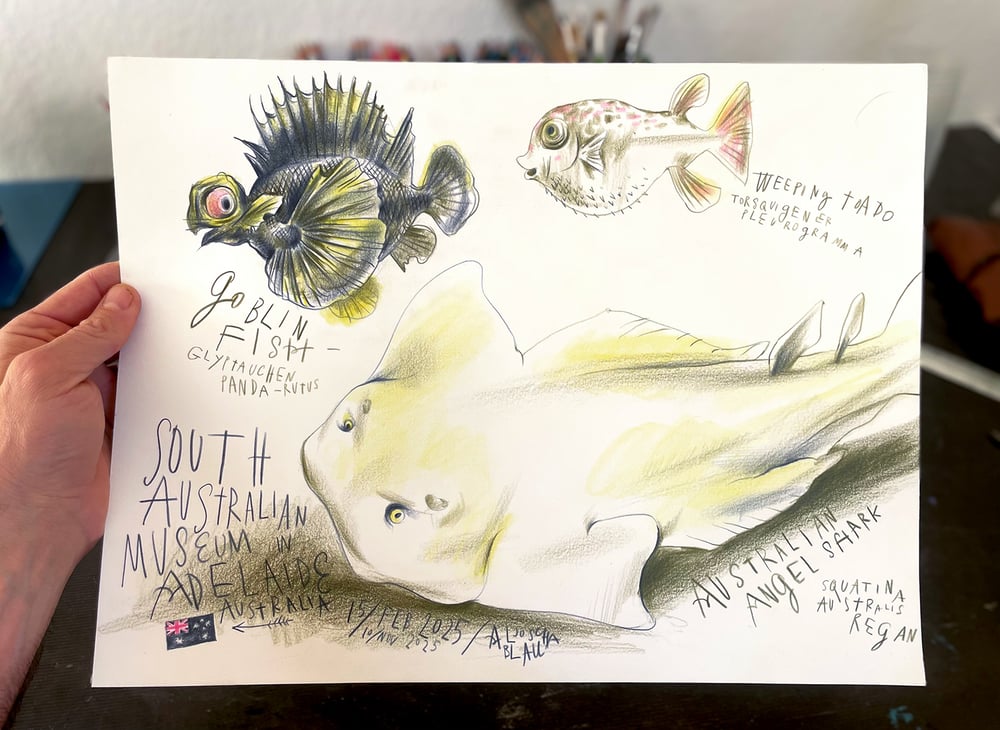 GOBLIN
FISH -
GLYPTAUCHEN
PANDA-RUTUS
WEEPING TOADO
TORSQVIGENER
PLEUROGRAMMA
SOUTH
AUSTRALIAN
MUSEUM IN
ADELAIDE
AUSTRALIA
15/FEB 2025 / ALJOSCHA
10/NOV 2025 BLAU
AUSTRALIAN
ANGEL SHARK
SQUATINA
AUSTRALIS
REGAN